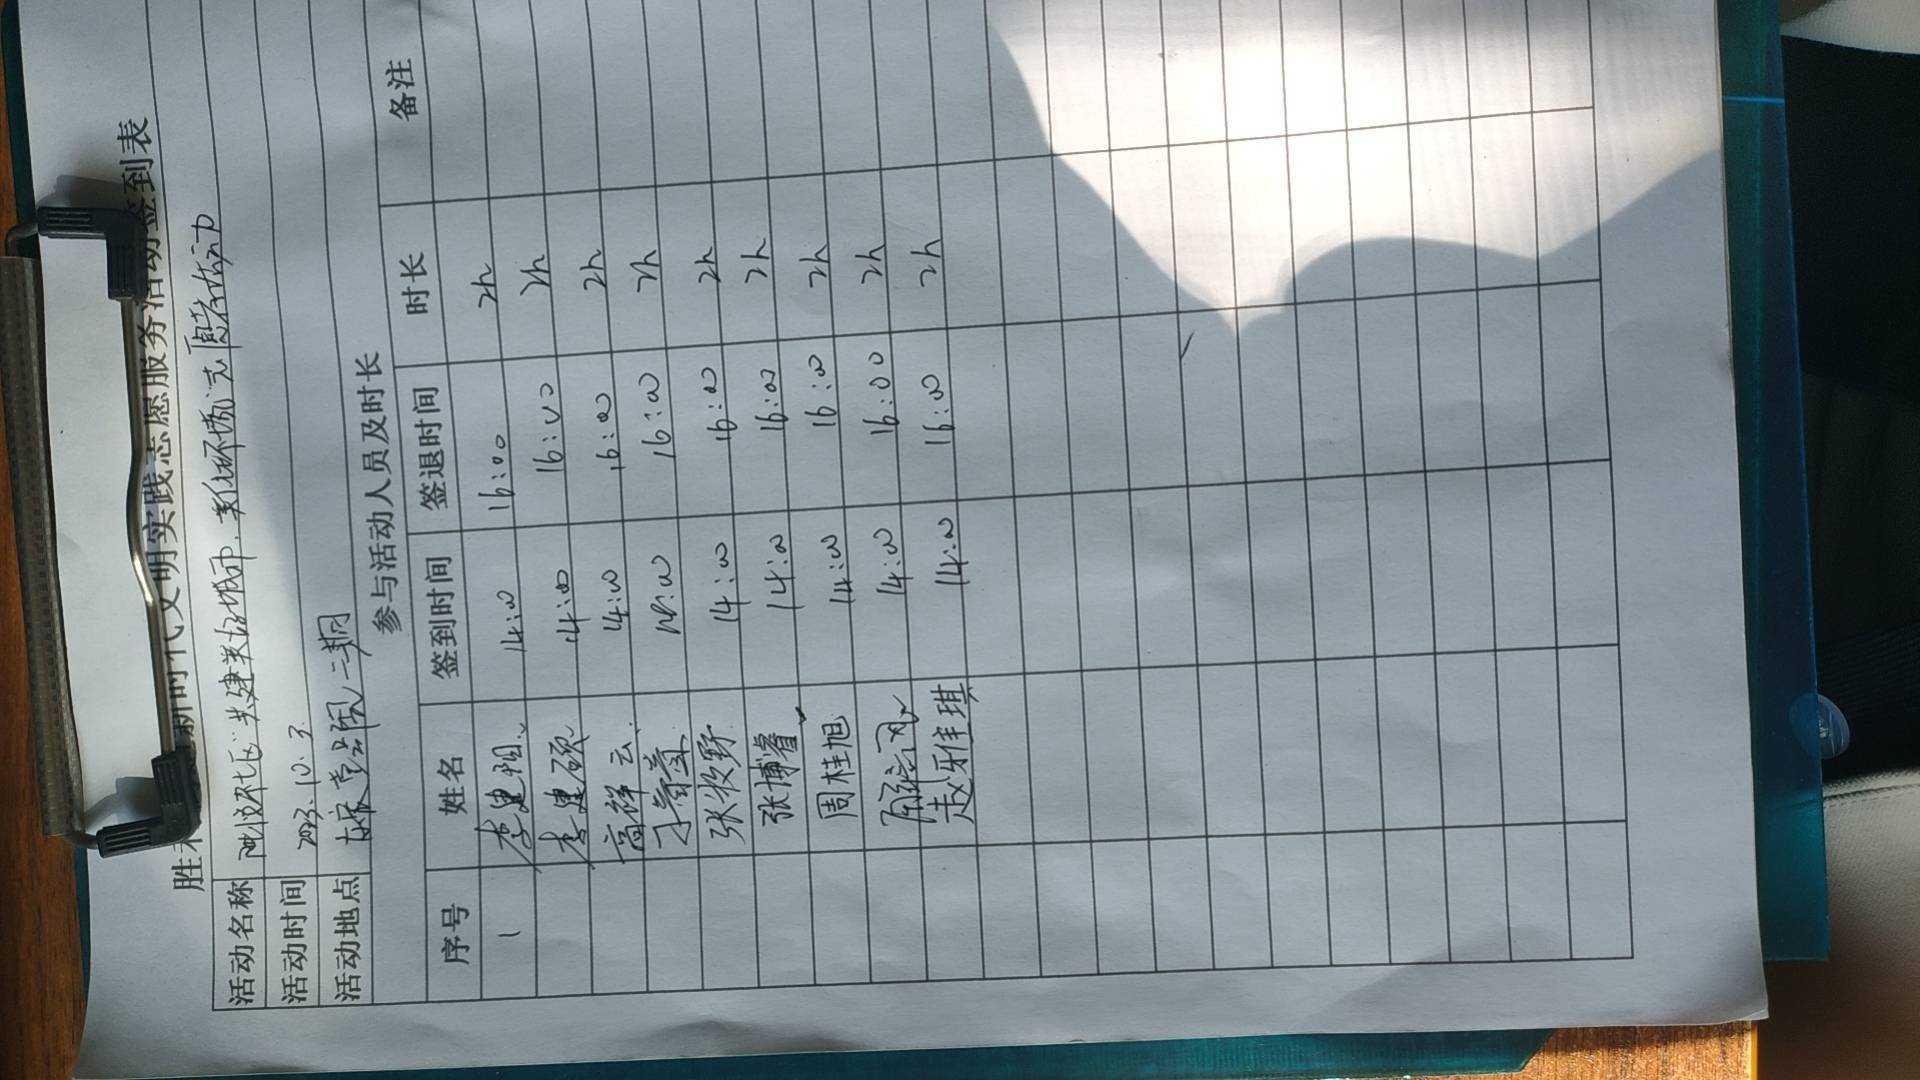 新时代文明实践志愿服务活动签到表
活动名称 共建 城市
活动时间 2023.10.3
活动地点 二期
参与活动人员及时长
序号 姓名 签到时间 签退时间 时长 备注
1 李建阳 14:00 16:00 2h
李建硕 14:00 16:00 2h
高祥云 14:00 16:00 2h
14:00 16:00 2h
张牧野 14:00 16:00 2h
张博睿 14:00 16:00 2h
周桂旭 14:00 16:00 2h
14:00 16:00 2h
赵雅琪 14:00 16:00 2h